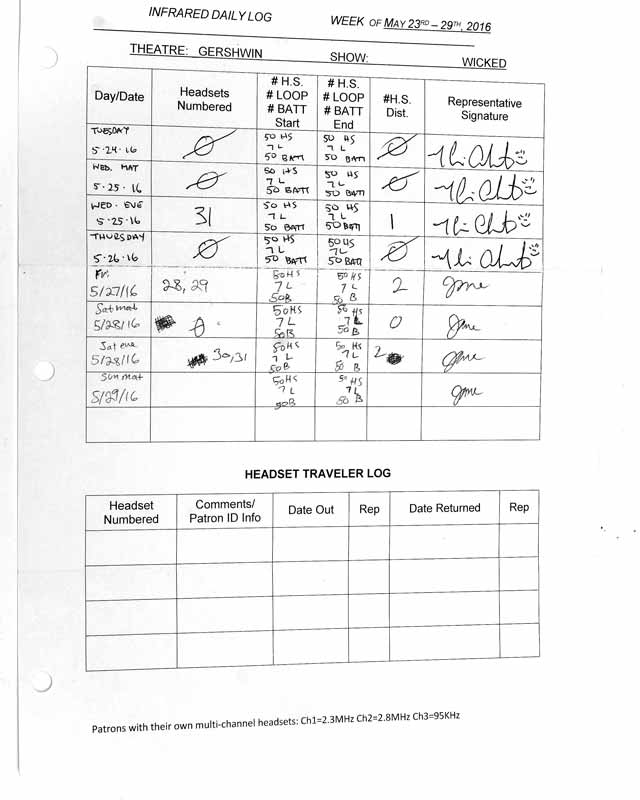 INFRARED DAILY LOG WEEK OF MAY 23RD – 29TH, 2016
THEATRE: GERSHWIN SHOW: WICKED
Day/Date
Headsets
Numbered
# H.S.
# LOOP
# BATT
Start
# H.S.
# LOOP
# BATT
End
#H.S.
Dist.
Representative
Signature
TUESDAY
5·24·16
Ø
50 HS
7 L
50 BATT
50 HS
7 L
50 BATT
Ø
WED. MAT
5·25·16
Ø
50 HS
7 L
50 BATT
50 HS
7 L
50 BATT
Ø
WED. EVE
5·25·16
31
50 HS
7 L
50 BATT
50 HS
7 L
50 BATT
1
THURSDAY
5·26·16
Ø
50 HS
7 L
50 BATT
50 HS
7 L
50 BATT
Ø
Fri.
5/27/16
28, 29
50HS
7 L
50B
50 HS
7 L
50 B
2
Sat mat
5/28/16
0
50HS
7 L
50B
50 HS
7 L
50 B
0
Sat eve
5/28/16
30,31
50HS
7 L
50B
50 HS
7L
50 B
2
Sun mat
5/29/16
50HS
7 L
50B
50 HS
7 L
50 B
HEADSET TRAVELER LOG
Headset
Numbered
Comments/
Patron ID Info
Date Out
Rep
Date Returned
Rep
Patrons with their own multi-channel headsets: Ch1=2.3MHz Ch2=2.8MHz Ch3=95KHz